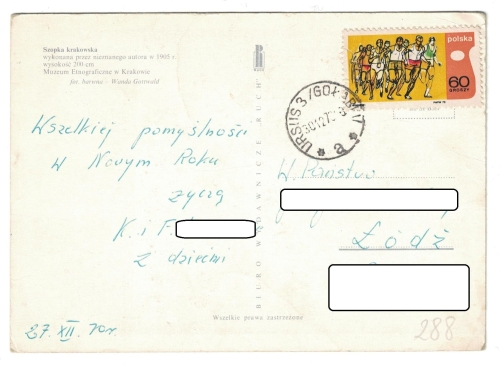 Szopka krakowska
wykonana przez nieznanego autora w 1905 r.
wysokość 200 cm
Muzeum Etnograficzne w Krakowie
fot. barwna - Wanda Gottwald
Wszelkiej pomyślności
w Nowym Roku
życzą
K. i F.
z dziećmi
27. XII. 70r.
BIURO WYDAWNICZE „RUCH”
Wszelkie prawa zastrzeżone
polska
60
GROSZY
URSUS 3
a
W. Państwo
Łódź
288